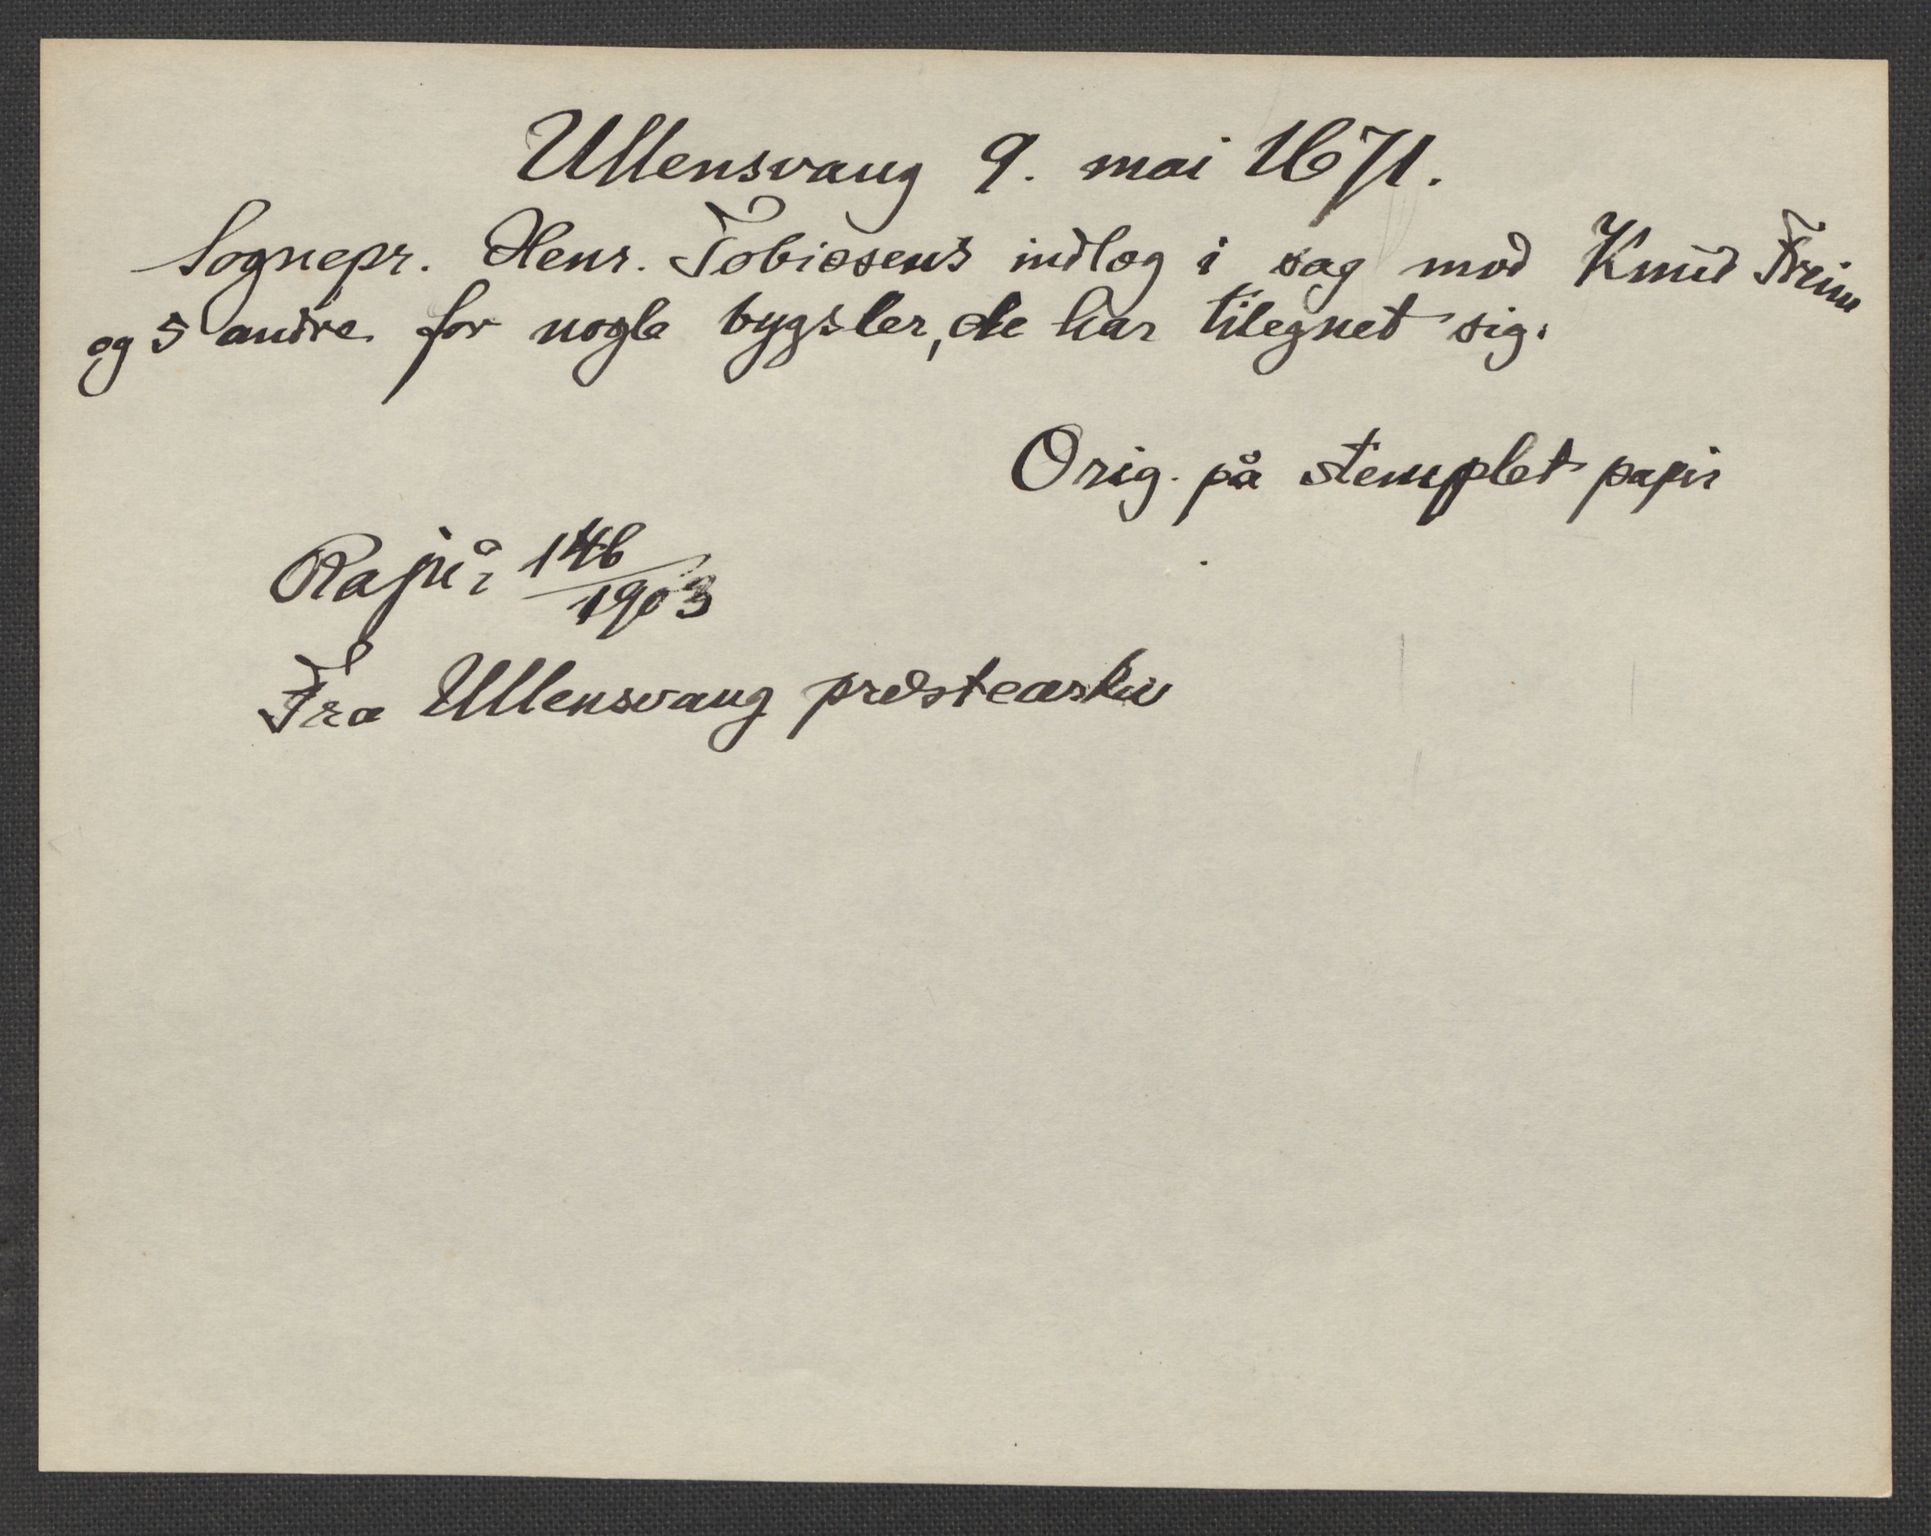 Ullensvang 9. mai 1671.
Sognepr. Henr. Tobiasens indlæg i sag mod Knud Freim
og 5 andre for nogle bygsler, de har tilegnet sig.
Orig. på stemplet papir
Ra jnr 146/1903
Fra Ullensvang præstearkiv